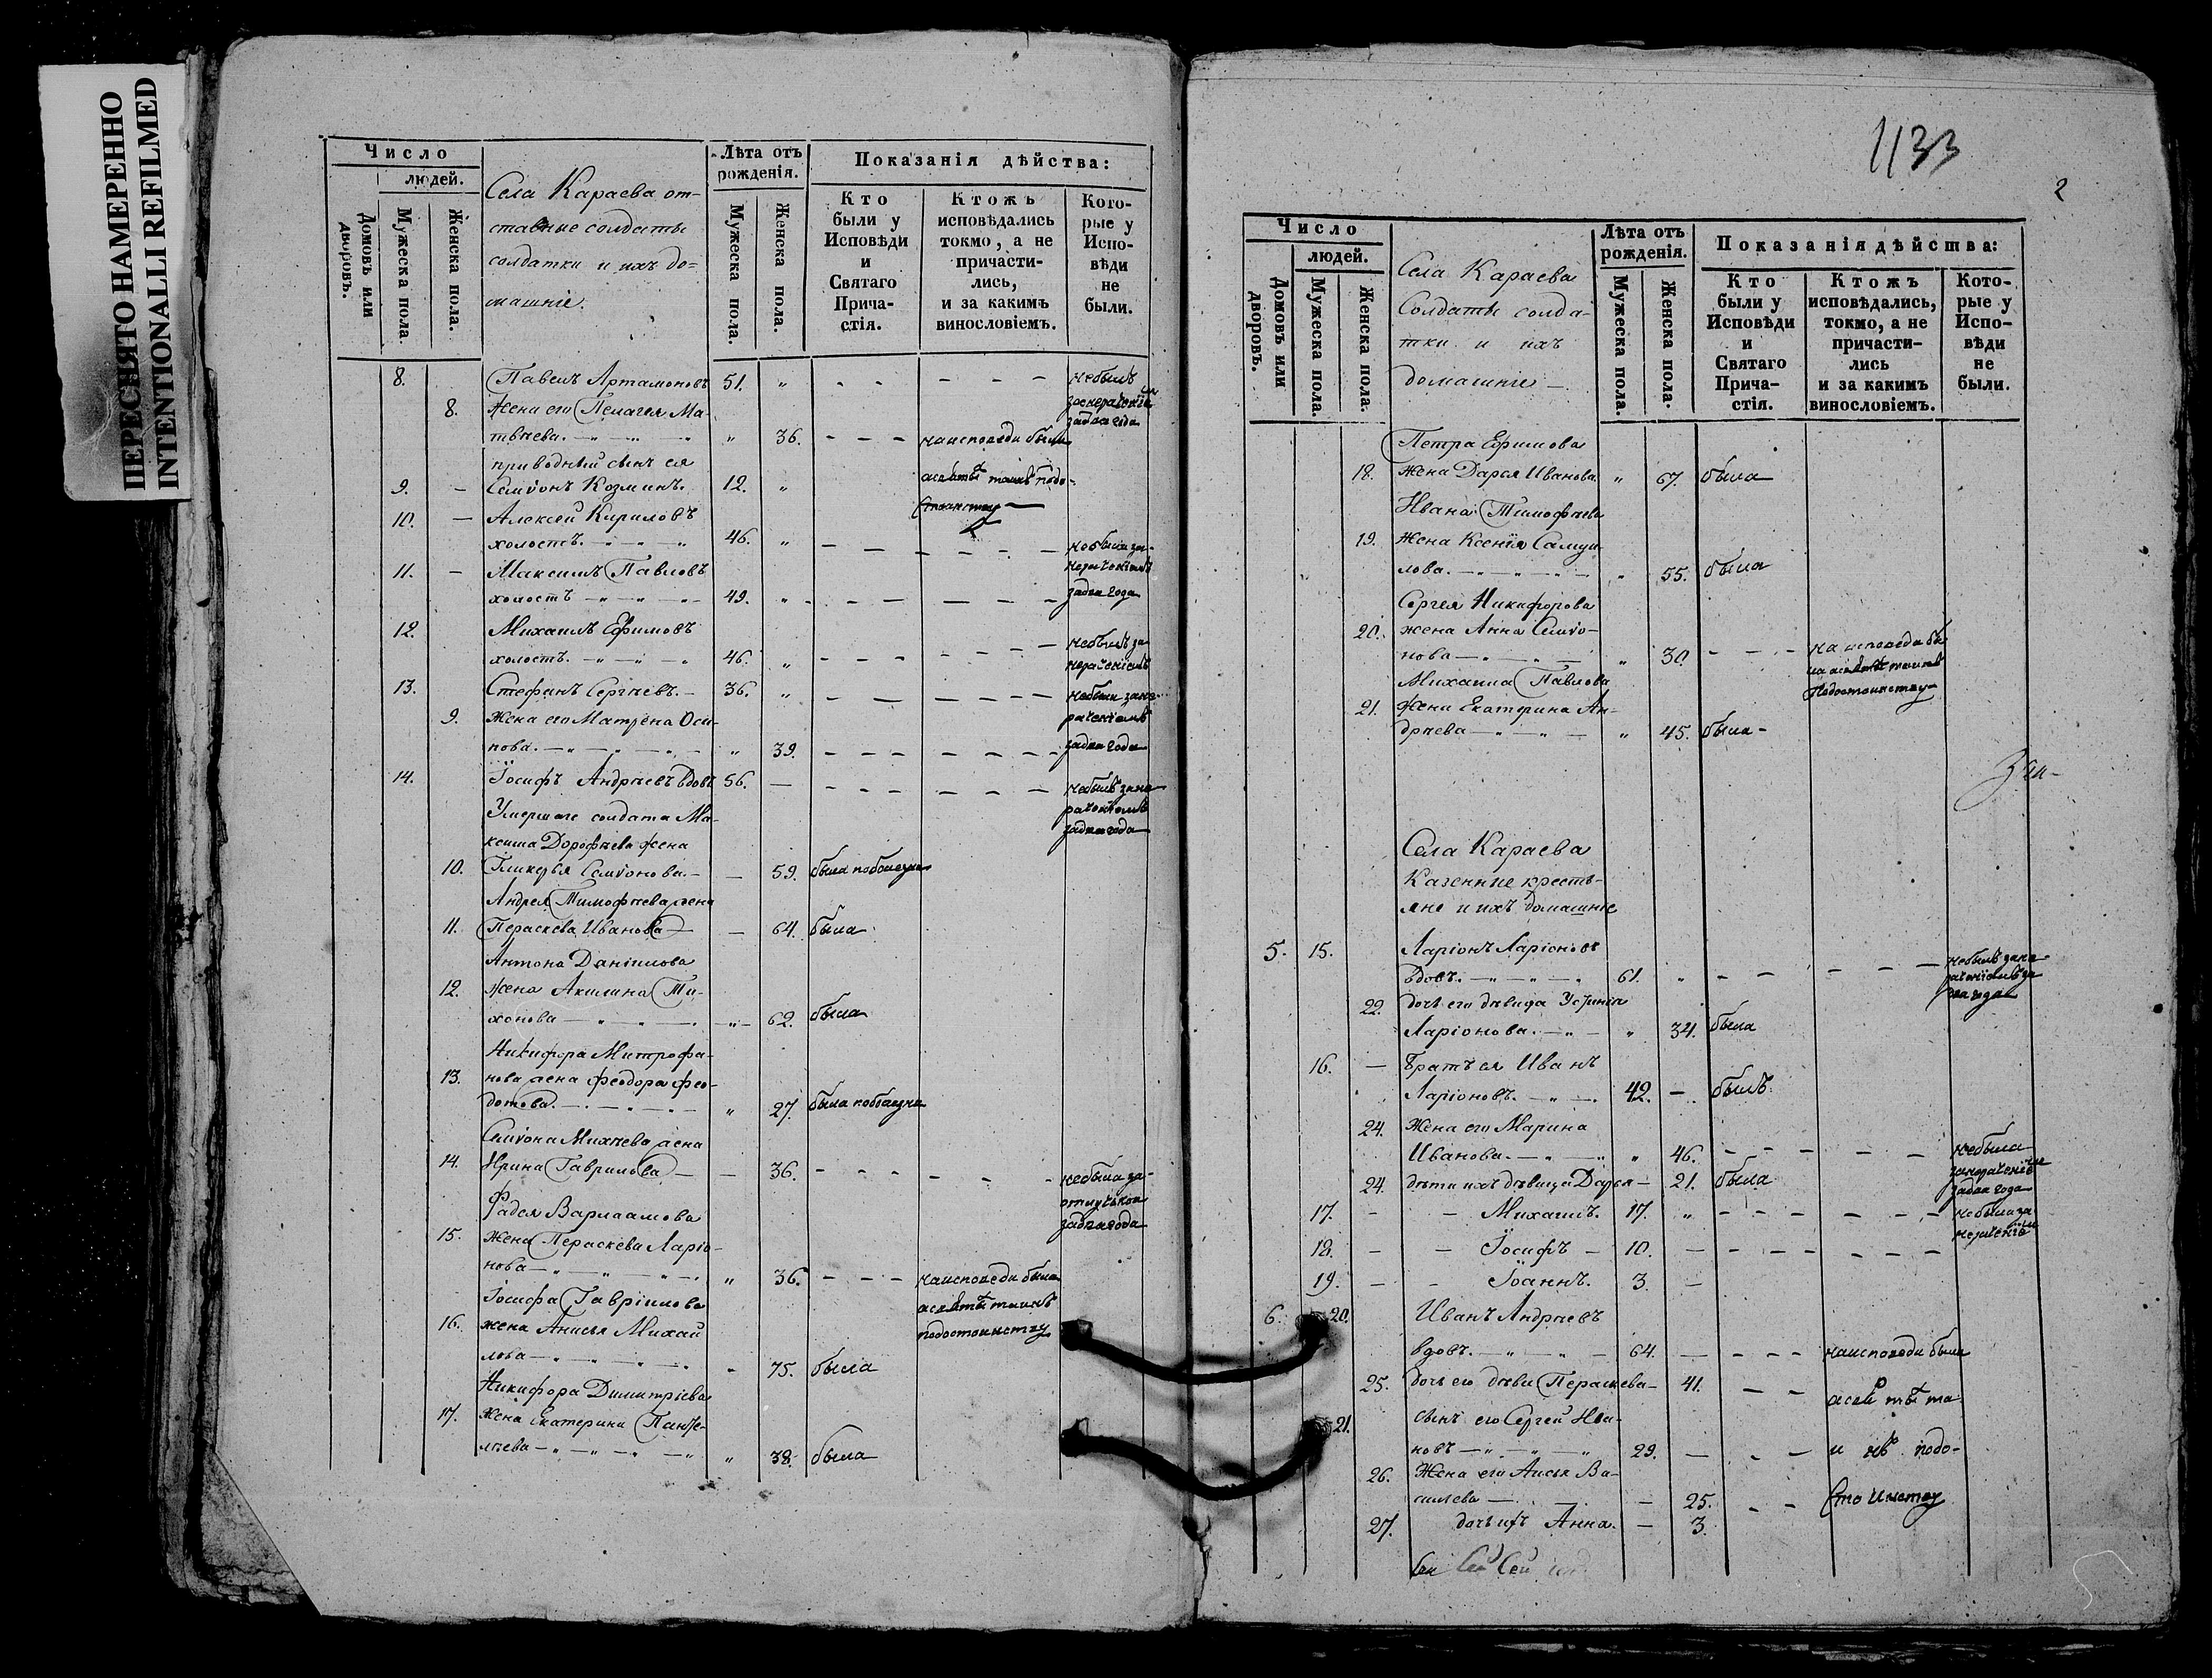 ПЕРЕСНЯТО НАМЕРЕННО
INTENTIONALLI REFILMED
Число
людей.
Домовъ или дворовъ.
Мужеска пола
Женска пола.
Села Караева от-
ставные солдаты
солдатки и ихъ до=
машніе.
Лѣта отъ рожденія.
Мужеска пола.
Женска пола.
Показанія дѣйства:
Кто были у Исповѣди и Святаго Прича-стія.
Ктожъ исповѣдались токмо, а не причасти-лись, и за какимъ винословіемъ.
Кото-рые у Испо-вѣди не были.
8. Павелъ Артамоновъ 51. „ небылъ
8. Жена его Пелагея Ма-
задва года
твѣева. „ 36. наисповеди была
приводный сынъ ея
9. Семіонъ Козминъ. 12. „
10. Алексей Кириловъ
холостъ. 46. „
11. Максимъ Павловъ
холостъ 49. „ задва года
12. Михаилъ Ефимовъ
холостъ. 46. „ небылъ за
нераченіемъ
13. Стефанъ Сергѣевъ. 36. „ небыли зане-
раченіемъ
9. Жена его Матрена Оси-
пова. „ 39. задва года
14. Іосифъ Андрѣевъ вдовъ 56. небылъ зане
раченіемъ
задва года
Умершаго солдата Ма-
ксима Дорофѣева жена
10. Гликерья Семіонова 59. была
Андрея Тимофѣева жена
11. Пераскева Иванова 64. была
Антона Даніилова
12. жена Акилина Ти-
хонова 62. была
Никифора Митрофа-
13. нова жена Феодора Фео-
дотова. „ 27. была
Семіона Михѣева жена
14. Ирина Гаврилова 36. небыла за-
отлучькою
задва года
Фадея Варлаамова
15. жена Пераскева Ларіо-
нова „ 36. наисповеди была
Іосифа Гавріилова
подостоинству
16. жена Анисья Михай
лова 75. была
Никифора Димитріева
17. жена Екатерина Панте-
лѣева „ 38. была
1133
2
Число
людей.
Домовъ или дворовъ.
Мужеска пола.
Женска пола.
Села Караева
Солдаты солда-
тки и ихъ
домашніе
Лѣта отъ рожденія.
Мужеска пола.
Женска пола.
Показанія дѣйства:
Кто были у Исповѣди и Святаго Прича-стія.
Ктожъ исповѣдались, токмо, а не причасти-лись и за какимъ винословіемъ.
Кото-рые у Испо-вѣди не были.
Петра Ефимова
18. жена Дарья Иванова „ 67. была
Ивана Тимофѣева
19. Жена Ксенія Самуи
лова. „ 55. была
Сергея Никифорова
20. жена Анна Семіо-
нова „ 30. на исповеди бы
Михаила Павлова
подостоинству
21. жена Екатерина Ан-
дрѣева „ 45. была
Села Караева
Казенные кресть-
яне и ихъ домашніе
5. 15. Ларіонъ Ларіоновъ
вдовъ. 61. „ небылъ зане
раченіемъ за
два года
22. дочь его дѣвица Устинія
Ларіонова. „ 34. была
16. Братъ ея Иванъ
Ларіоновъ. 42. былъ
24. Жена его Марина
Иванова. „ 46. небыла
задва года
24. дѣти ихъ дѣвица Дарья 21. была
17. Михаилъ. 17. „ небыли за
18. Іосифъ 10.
19. Іоаннъ. 3.
6. 20. Иванъ Андрѣевъ
вдовъ. 64. наисповеди были
25. дочь его дѣви Пераскева 41.
21. сынъ его Сергей Ива-
новъ 29. подо-
26. Жена его Анисья Ва-
сильева 25. стоинству
27. дочь ихъ Анна. 3.